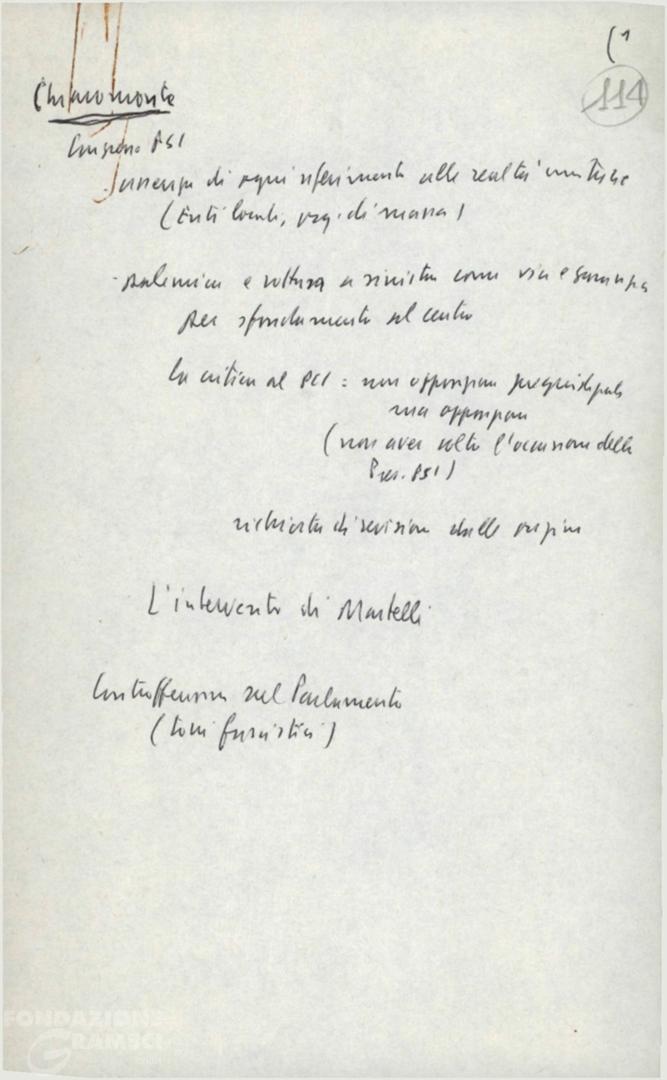 (1
114
Chiaromonte
Congresso PSI
- assenza di ogni riferimento alle realtà unitarie
(Enti locali, org. di massa)
- polemica e rottura a sinistra come via e garanzia
per sfondamento al centro
la critica al PCI: non opposizione pregiudiziale
ma opposizione
(non aver colto l'occasione della
Pres. PSI)
richiesta di revisione dalle origini
L'intervento di Martelli
Controffensiva sul Parlamento
(toni fascistici)
FONDAZIONE
GRAMSCI